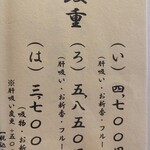 重
(い) 四、七〇〇
(肝吸い・お新香・フルー
(ろ) 五、八五〇
(肝吸い・お新香・フルー
(は) 三、七〇〇
(吸物・お新香
※肝吸い変更・五